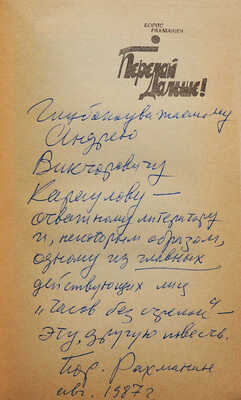 БОРИС
РАХМАНИН
Передай
Дальше!
Глубокоуважаемому
Андрею
Викторовичу
Караулову —
отважному литератору
и, некоторым образом,
одному из главных
действующих лиц
"Часов без стрелок" —
эту, другую повесть.
Бор. Рахманин
авг. 1987 г.